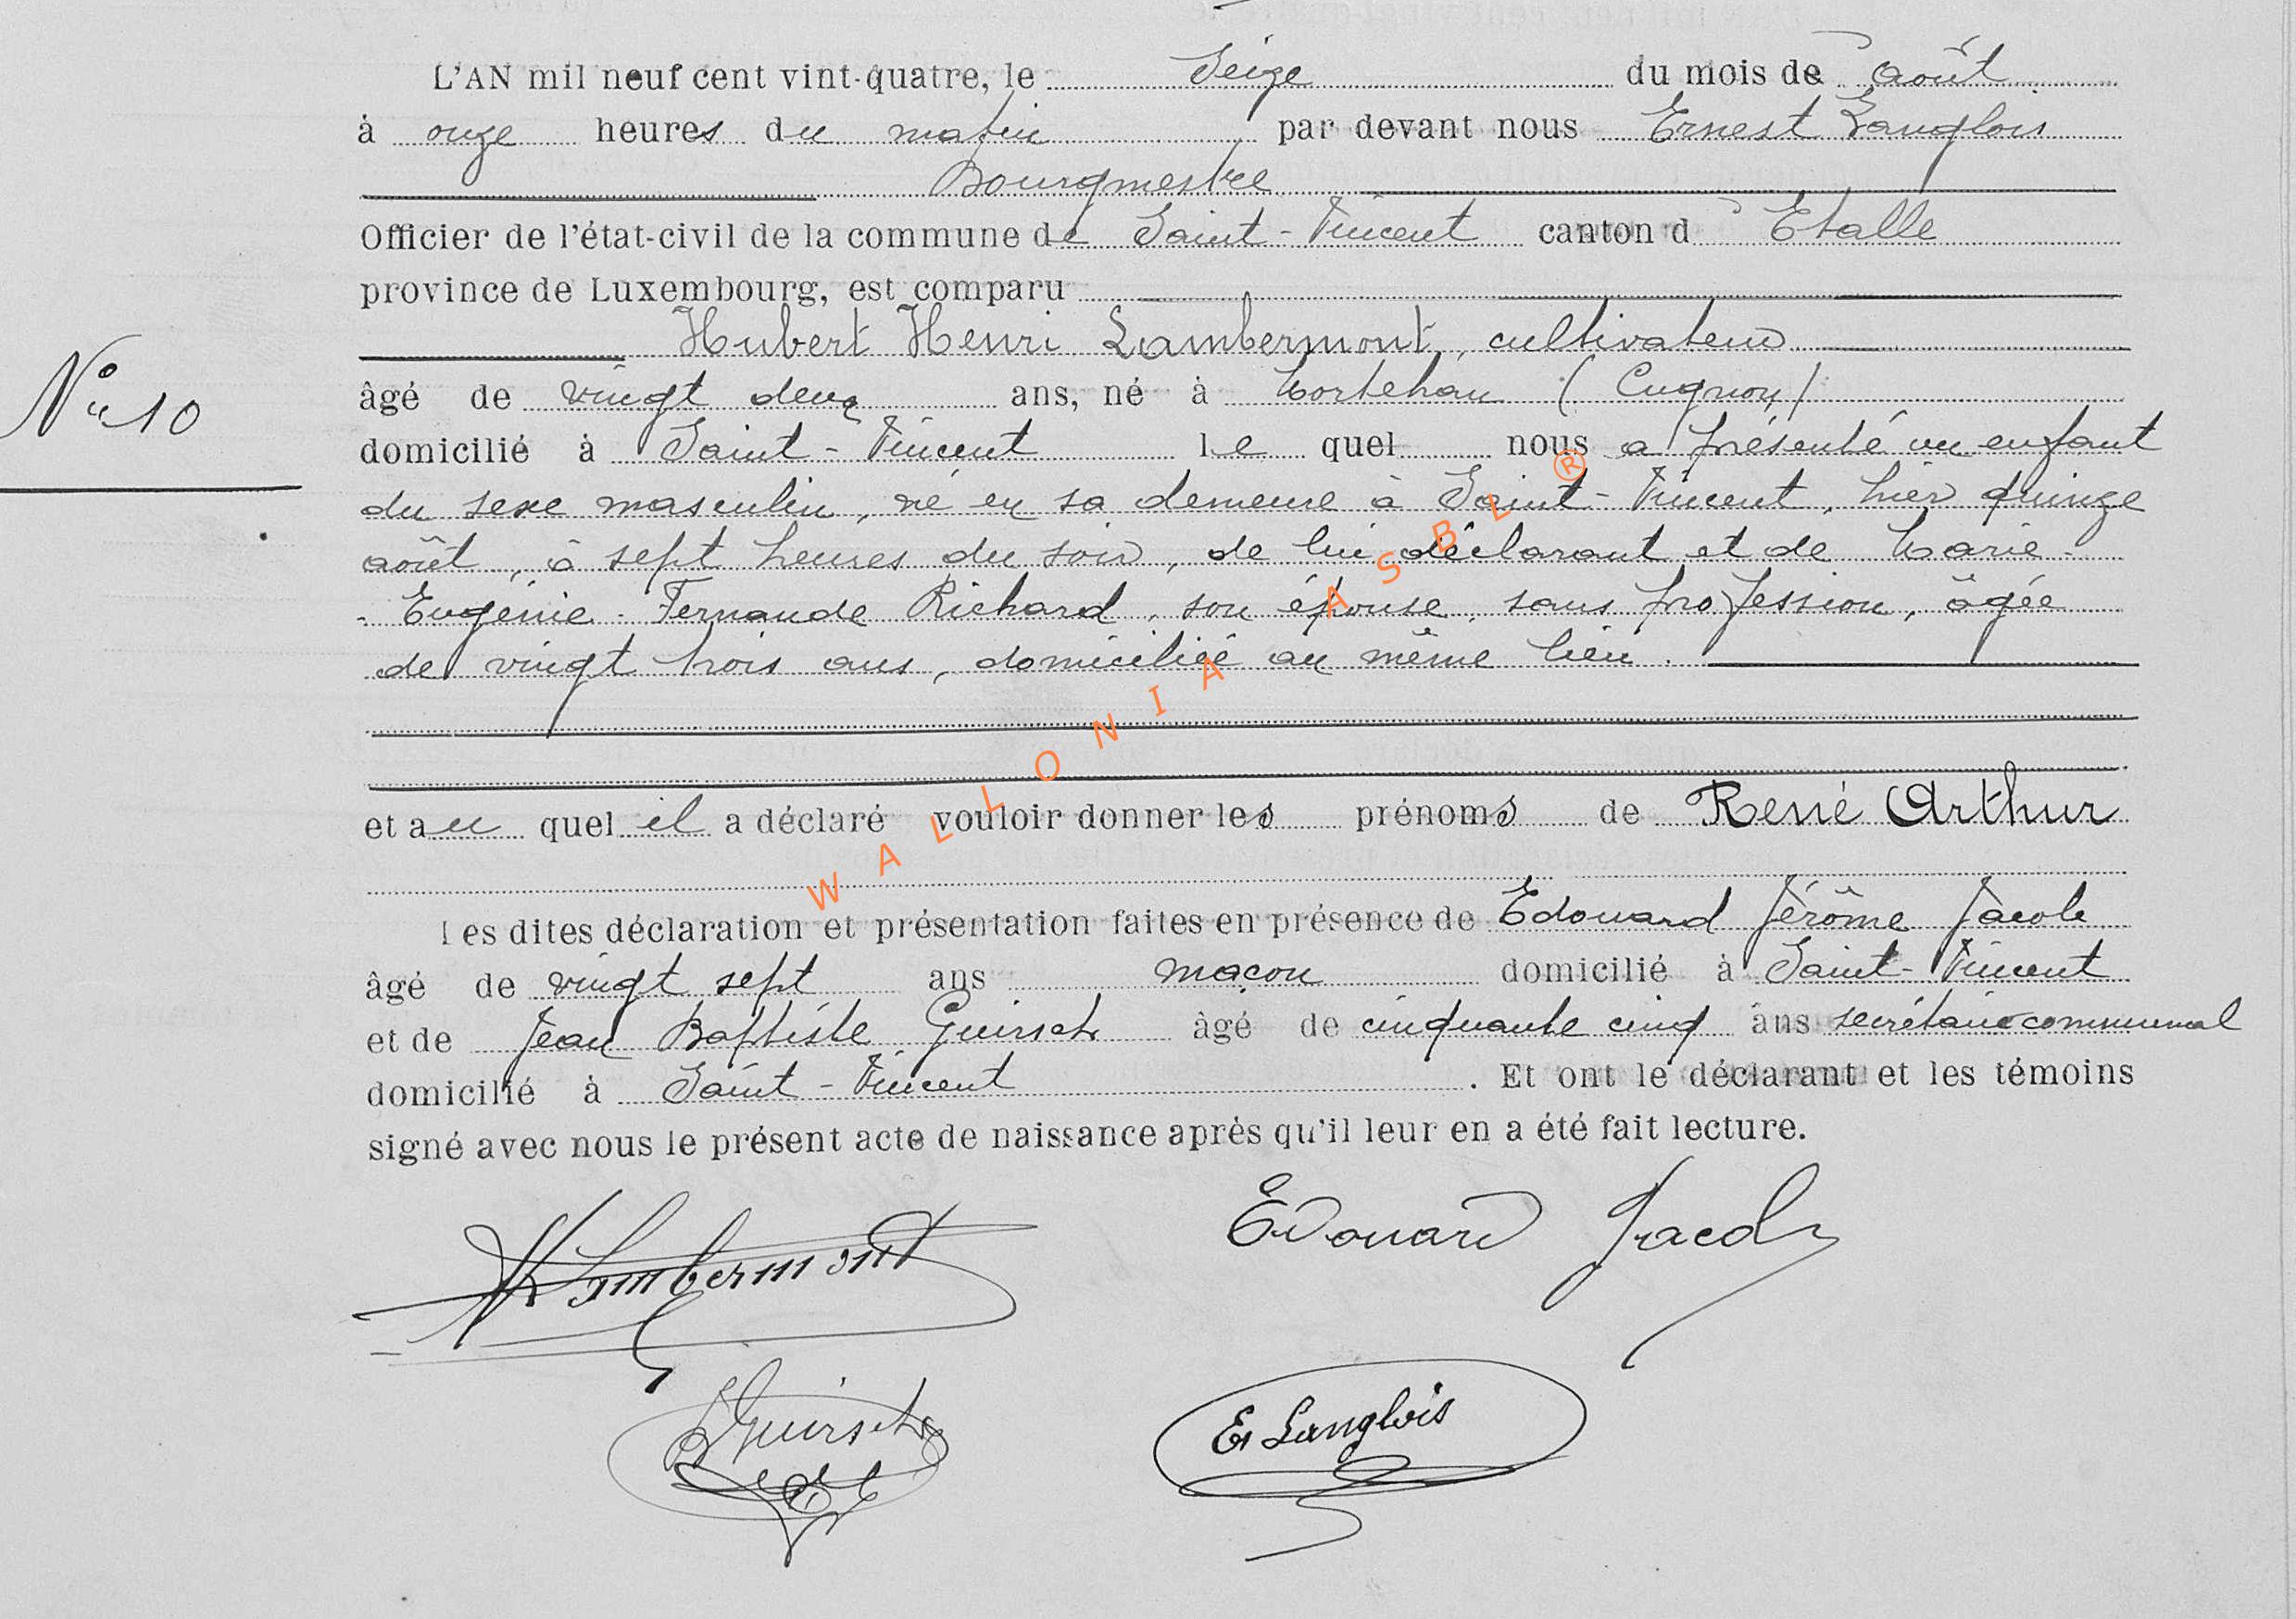 L'AN mil neuf cent vint-quatre, le Seize du mois de août
à onze heures du matin par devant nous Ernest Langlois
Bourgmestre
Officier de l'état-civil de la commune de Saint-Vincent canton d' Etalle
province de Luxembourg, est comparu
Hubert Henri Lambermont, cultivateur
âgé de vingt deux ans, né à Mortehan (Cugnon)
N° 10
domicilié à Saint-Vincent le quel nous a présenté un enfant
du sexe masculin, né en sa demeure à Saint-Vincent, hier quinze
août, à sept heures du soir, de lui déclarant et de Marie-
-Eugénie-Fernande Richard, son épouse, sans profession, âgée
de vingt trois ans, domiciliée au même lieu.
et au quel il a déclaré vouloir donner les prénoms de René Arthur
Les dites déclaration et présentation faites en présence de Edouard Jérôme Jacob
âgé de vingt sept ans maçon domicilié à Saint-Vincent
et de Jean Baptiste Guirsch âgé de cinquante cinq ans secrétaire communal
domicilié à Saint-Vincent. Et ont le déclarant et les témoins
signé avec nous le présent acte de naissance après qu'il leur en a été fait lecture.
H Lambermont Edouard Jacob
Guirsch E. Langlois
WALLONIA ASBL ®